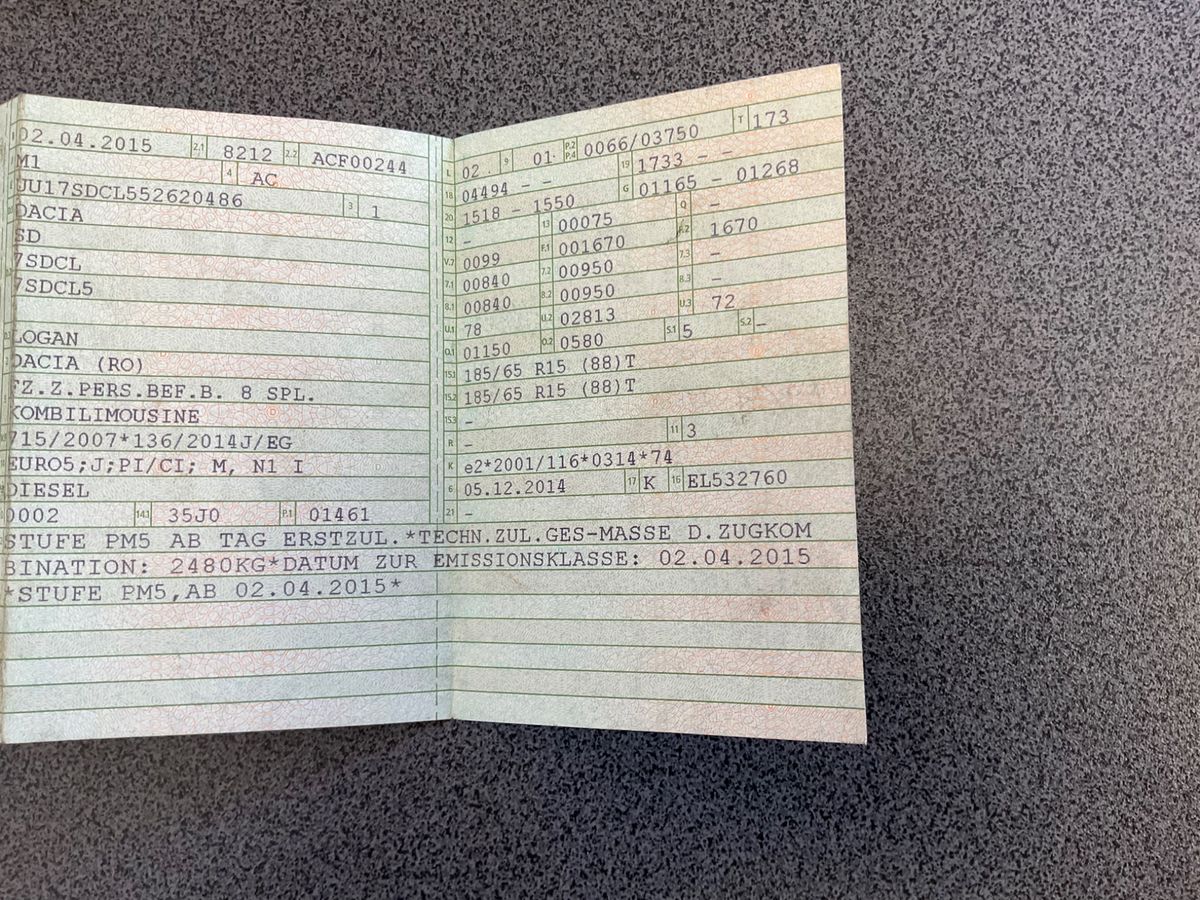 02.04.2015 2.1 8212 2.2 ACF00244
M1 4 AC
UU17SDCL552620486 3 1
DACIA
SD
7SDCL
7SDCL5
LOGAN
DACIA (RO)
FZ.Z.PERS.BEF.B. 8 SPL.
KOMBILIMOUSINE
715/2007*136/2014J/EG
EURO5;J;PI/CI; M, N1 I
DIESEL
0002 14.1 35J0 P.1 01461
L 02 9 01 P.2 P.4 0066/03750 T 173
18 04494 - - 19 1733 - -
20 1518 - 1550 G 01165 - 01268
12 - 13 00075 Q -
V.7 0099 F.1 001670 F.2 1670
7.1 00840 7.2 00950 7.3 -
8.1 00840 8.2 00950 8.3 -
U.1 78 U.2 02813 U.3 72
O.1 01150 O.2 0580 S.1 5 S.2 -
15.1 185/65 R15 (88)T
15.2 185/65 R15 (88)T
15.3 -
R - 11 3
K e2*2001/116*0314*74
6 05.12.2014 17 K 16 EL532760
21 -
STUFE PM5 AB TAG ERSTZUL.*TECHN.ZUL.GES-MASSE D.ZUGKOM
BINATION: 2480KG*DATUM ZUR EMISSIONSKLASSE: 02.04.2015
*STUFE PM5,AB 02.04.2015*